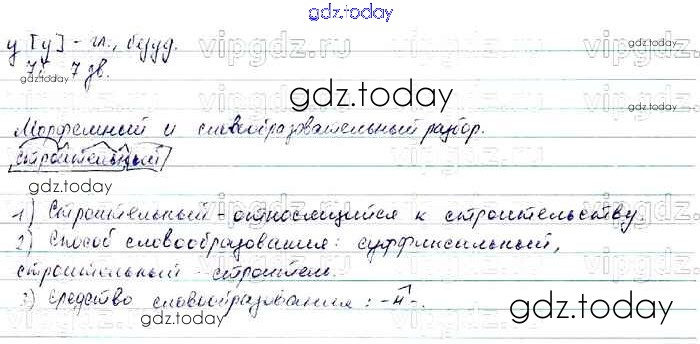 gdz.today
у [у] - гл., безуд.
7 б. 7 зв.
gdz.today
gdz.today
Морфемный и словообразовательный разбор.
строительный
gdz.today
1) Строительный - относящийся к строительству.
2) Способ словообразования: суффиксальный,
строительный - строитель.
3) Средство словообразования: -н-.
gdz.today
gdz.today